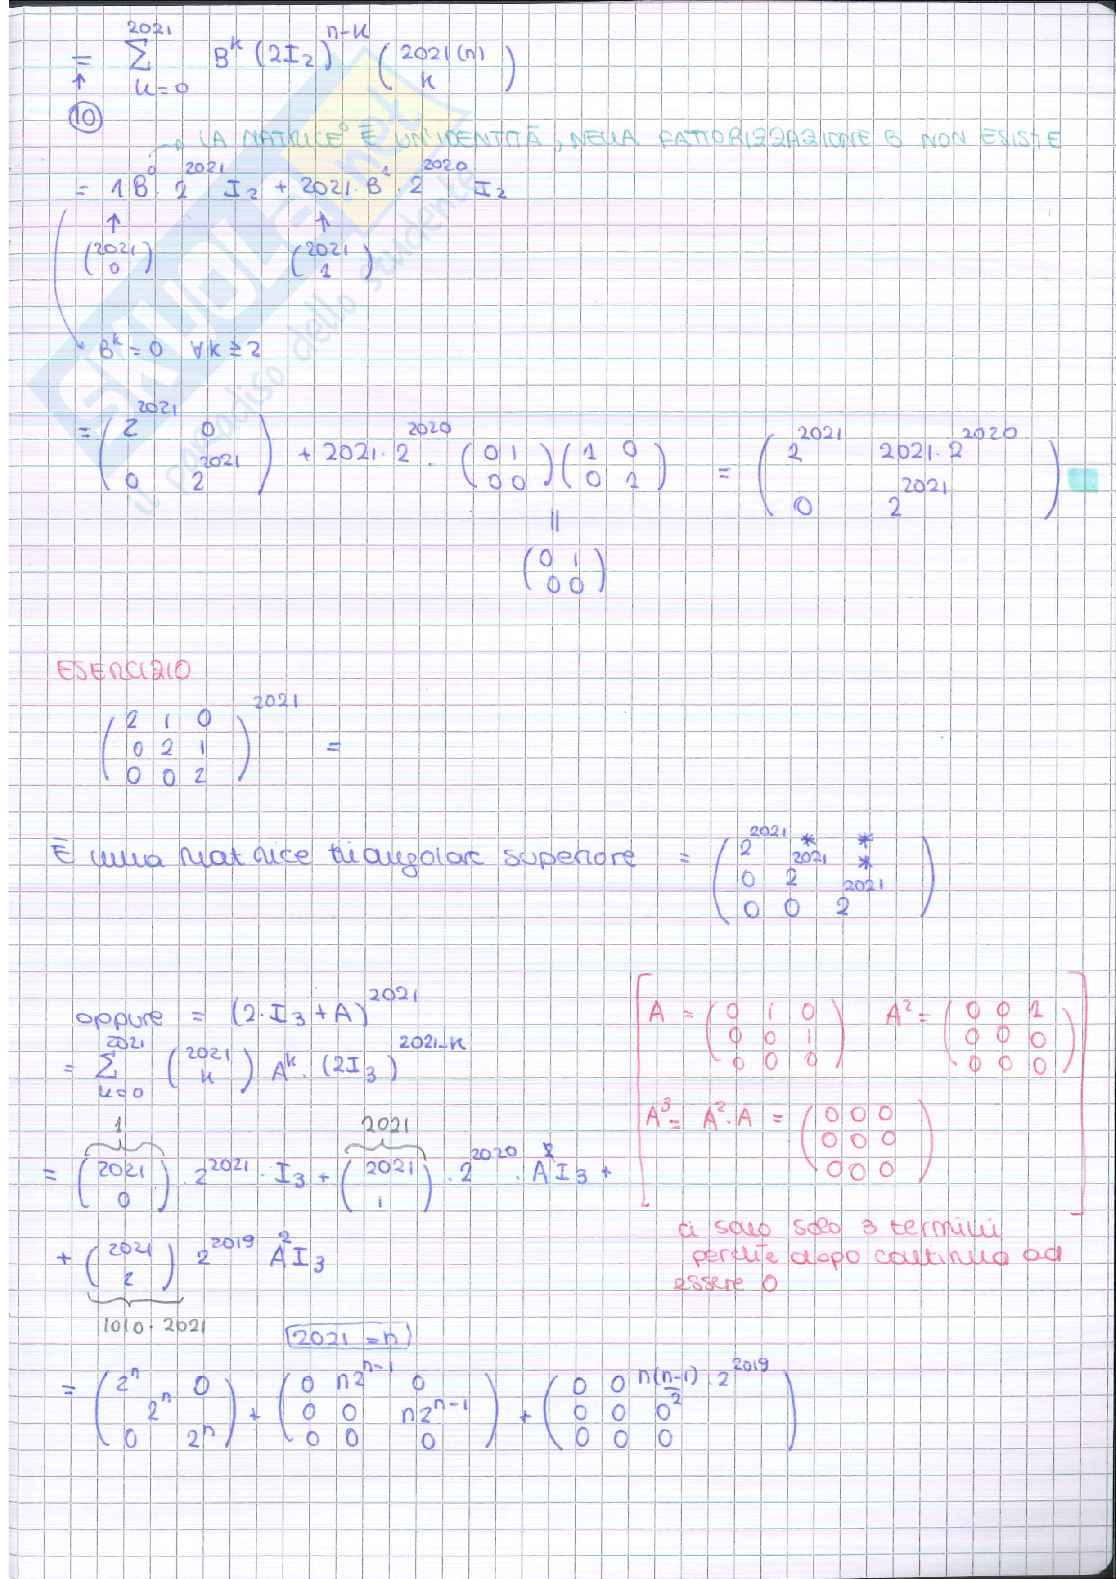 = ∑_{k=0}^{2021} B^k (2I₂)^{n-k} (2021(n) / k)
↑
⑩
→ LA MATRICE È UN'IDENTITÀ, NELLA FATTORIZZAZIONE B NON ESISTE
= 1 B⁰ · 2^{2021} I₂ + 2021 · B¹ · 2^{2020} I₂
↑ ↑
(2021 / 0) (2021 / 1)
B^k = 0 ∀k ≥ 2
= (2^{2021} 0 / 0 2^{2021}) + 2021 · 2^{2020} · (0 1 / 0 0)(1 0 / 0 1) = (2^{2021} 2021 · 2^{2020} / 0 2^{2021})
||
(0 1 / 0 0)
ESERCIZIO
(2 1 0 / 0 2 1 / 0 0 2)^{2021} =
È una matrice triangolare superiore = (2^{2021} * * / 0 2^{2021} * / 0 0 2^{2021})
oppure = (2 · I₃ + A)^{2021}
= ∑_{k=0}^{2021} (2021 / k) A^k · (2I₃)^{2021-k}
[A = (0 1 0 / 0 0 1 / 0 0 0) A² = (0 0 1 / 0 0 0 / 0 0 0)
A³ = A² · A = (0 0 0 / 0 0 0 / 0 0 0)]
1 2021
= (2021 / 0) · 2^{2021} · I₃ + (2021 / 1) · 2^{2020} · A I₃ +
+ (2021 / 2) 2^{2019} A² I₃
1010 · 2021
ci sono solo 3 termini
perchè dopo continua ad
essere 0
2021 = n
= (2^n 0 / 2^n / 0 2^n) + (0 n2^{n-1} 0 / 0 0 n2^{n-1} / 0 0 0) + (0 0 n(n-1)/2 · 2^{2019} / 0 0 0 / 0 0 0)
SKUOLA.net
il paradiso dello studente